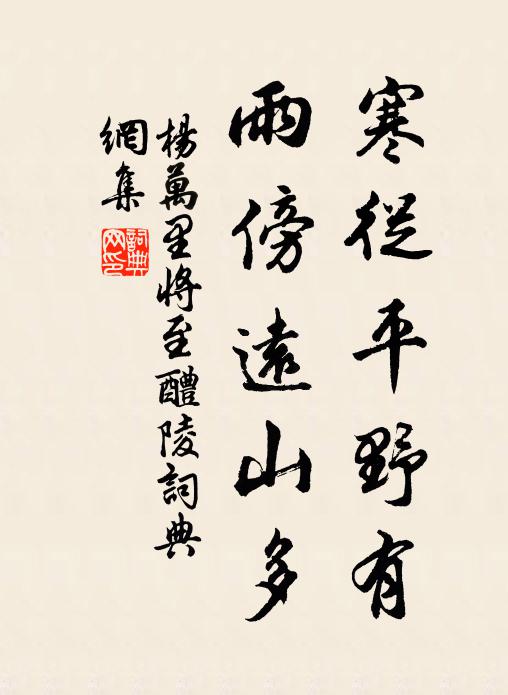 寒從平野有
雨傍遠山多
楊萬里將至醴陵詞典
網集
詞典網印